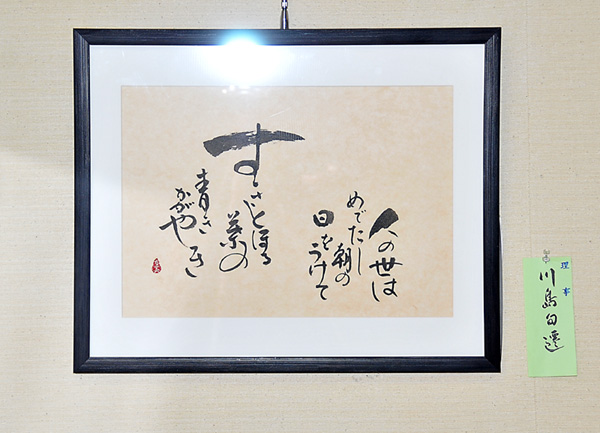 人の世は
めでたし朝の
日をうけて
すきとほる葉の
青き
かがやき
理事
川島